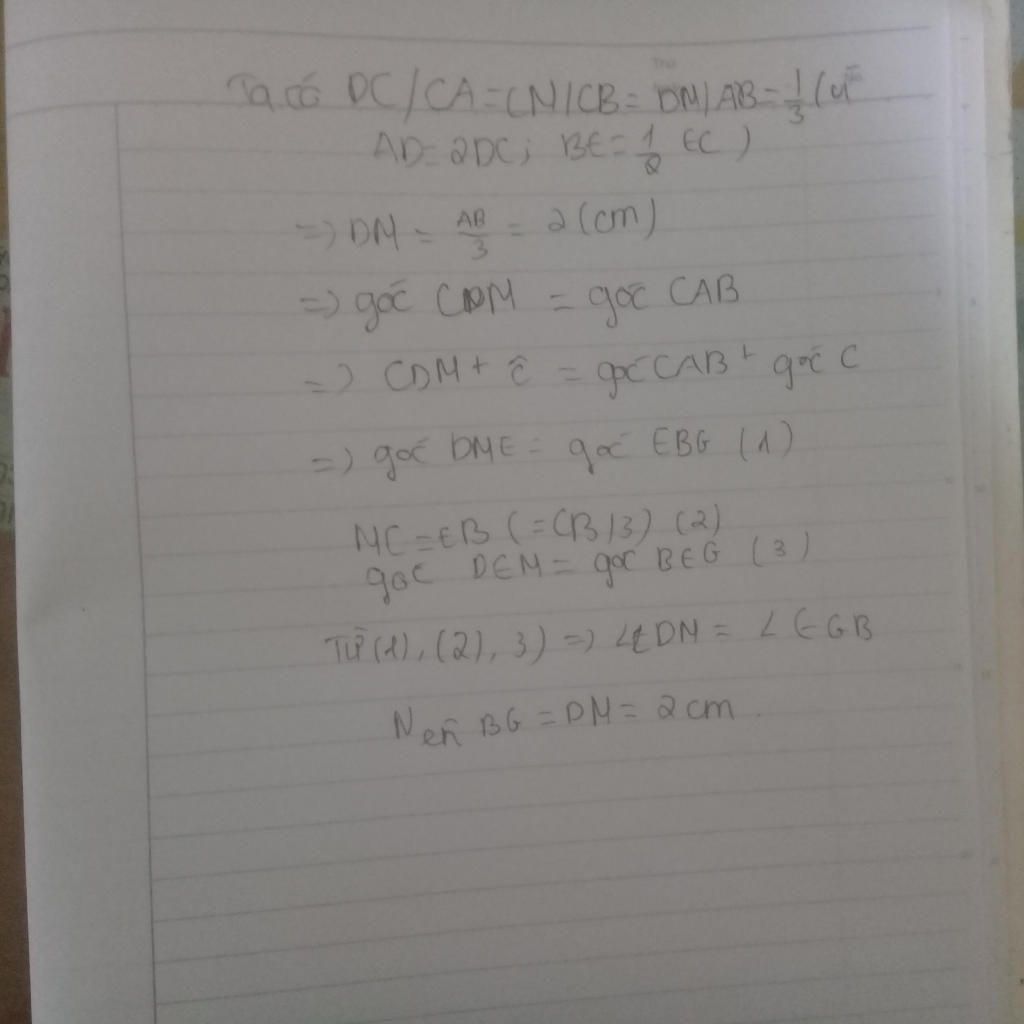 Ta có DC/CA=CM/CB= DM/AB=1/3 (vì
AD=2DC; BE=1/2 EC)
=> DM = AB/3 = 2(cm)
=> góc CDM = góc CAB
=> CDM + ĉ = góc CAB + góc C
=> góc DME = góc EBG (1)
ME=EB (=CB/3) (2)
góc DEM = góc BEG (3)
Từ (1), (2), 3) => ∠EDM = ∠EGB
Nên BG = DM = 2 cm.